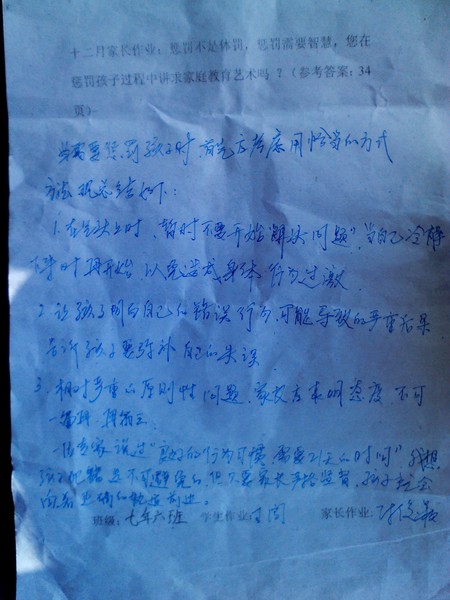 十二月家长作业：惩罚不是体罚，惩罚需要智慧，您在
惩罚孩子过程中讲求家庭教育艺术吗？（参考答案：34
页）
当需要惩罚孩子时，首先应考虑用恰当的方式
方法 现总结如下：
1.在气头上时，暂时不要开始“解决问题”，当自己冷静
时再开始，以免造成身体行为过激
2.让孩子明白自己的错误行为，可能导致的严重后果
告诉孩子要弥补自己的失误
3.相对严重的原则性问题，家长应表明态度 不可
一而再，再而三。
一位专家说过“良好的行为习惯，需要21天的时间”我想
孩子犯错是不可避免的，但只要家长严格监督，孩子社会
向着正确的轨道前进。
班级：七年六班 学生作业： 家长作业：